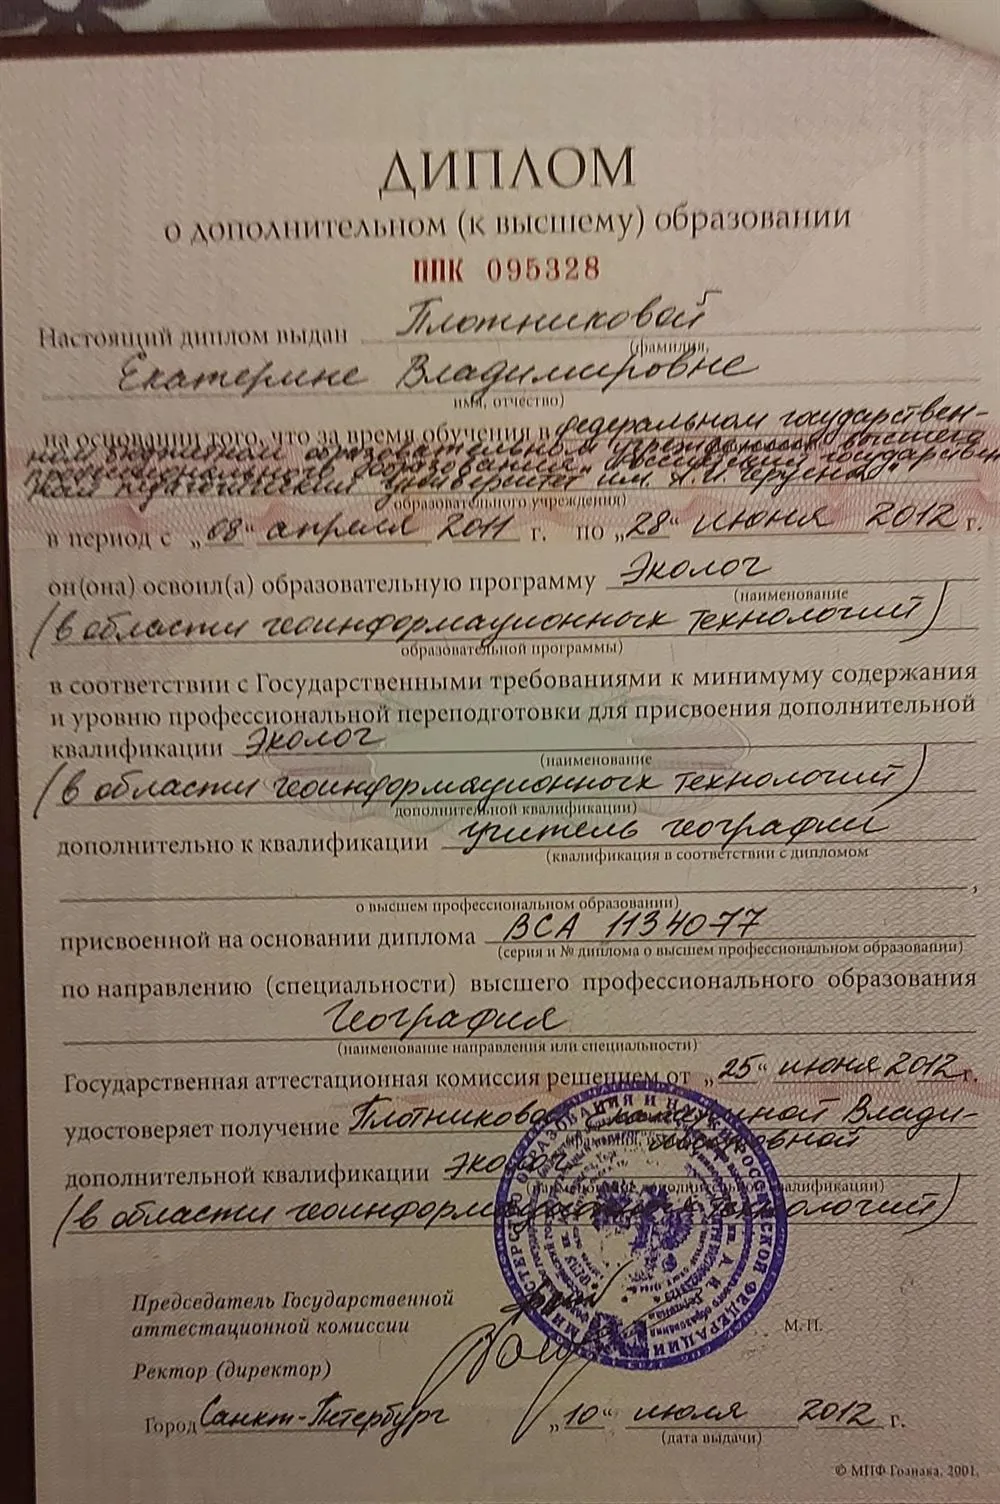 ДИПЛОМ
о дополнительном (к высшему) образовании
ППК 095328
Настоящий диплом выдан Плотниковой
(фамилия,
Екатерине Владимировне
имя, отчество)
на основании того, что за время обучения в федеральном государствен-
ном бюджетном образовательном учреждении высшего
профессионального образования "Российский государствен
ный педагогический университет им. А.И. Герцена"
образовательного учреждения)
в период с „08“ апреля 2011 г. по „28“ июня 2012 г.
он(она) освоил(а) образовательную программу Эколог
(наименование
(в области геоинформационных технологий)
образовательной программы)
в соответствии с Государственными требованиями к минимуму содержания
и уровню профессиональной переподготовки для присвоения дополнительной
квалификации Эколог
(наименование
(в области геоинформационных технологий)
дополнительной квалификации)
дополнительно к квалификации учитель географии
(квалификация в соответствии с дипломом
,
о высшем профессиональном образовании)
присвоенной на основании диплома ВСА 1134077
(серия и № диплома о высшем профессиональном образовании)
по направлению (специальности) высшего профессионального образования
География
(наименование направления или специальности)
Государственная аттестационная комиссия решением от „25“ июня 2012 г.
удостоверяет получение Плотниковой Екатериной Влади-
мировной
дополнительной квалификации Эколог
(наименование дополнительной квалификации)
(в области геоинформационных технологий)
МИНИСТЕРСТВО ОБРАЗОВАНИЯ И НАУКИ РОССИЙСКОЙ ФЕДЕРАЦИИ
Председатель Государственной
аттестационной комиссии
М. П.
Ректор (директор)
Город Санкт-Петербург „10“ июля 2012 г.
(дата выдачи)
© МПФ Гознака. 2001.